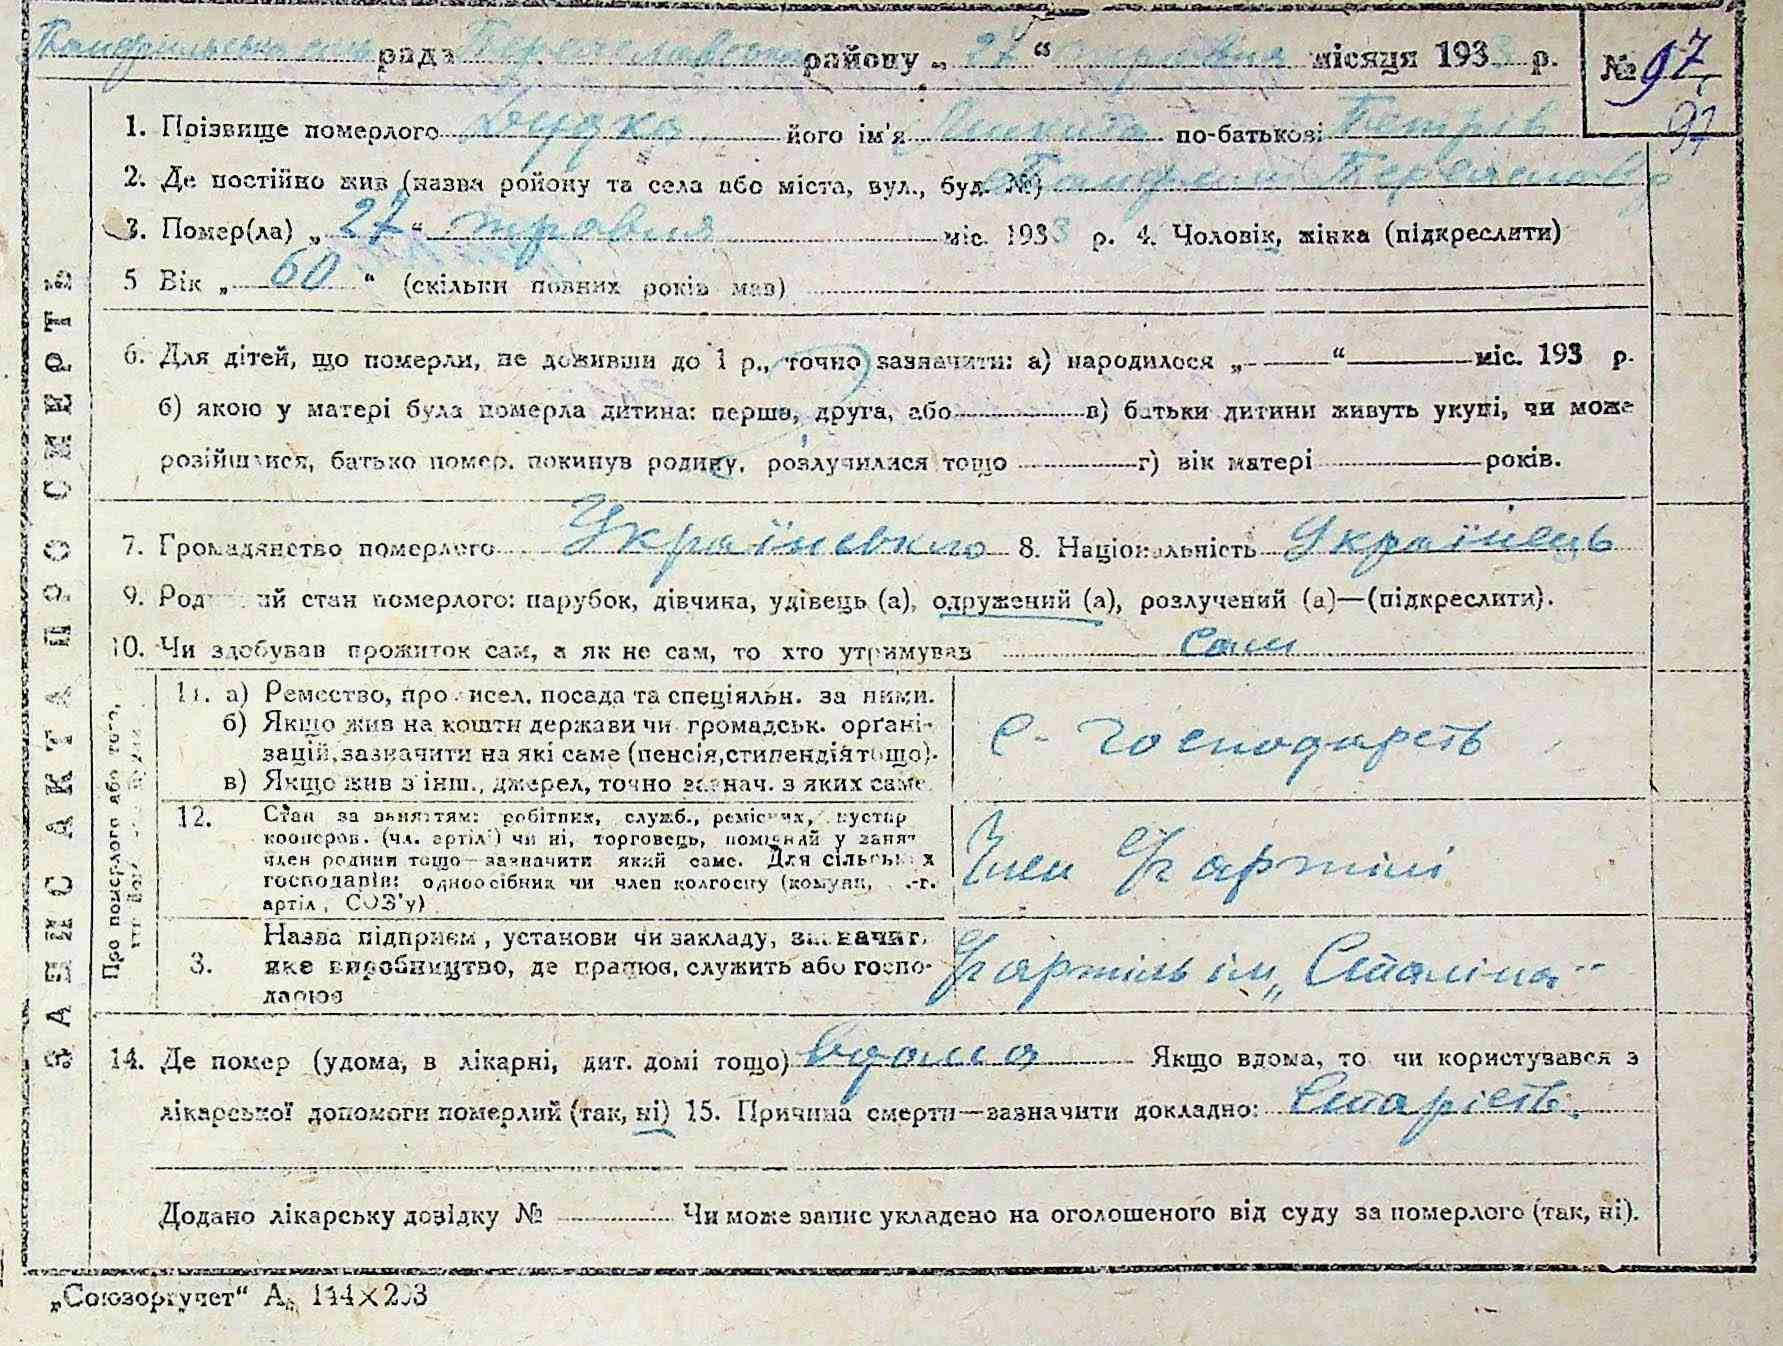 Панфильська сіль рада Переяславського району „ 27 “ травня місяця 1933 р. № 97
97
1. Прізвище померлого Дудка його ім'я Микита по-батькові Петрів
2. Де постійно жив (назва ройону та села або міста, вул., буд. №) Панфили Переяслав
3. Помер(ла) „ 27 “ травня міс. 1933 р. 4. Чоловік, жінка (підкреслити)
5 Вік „ 60 “ (скільки повних років мав)
6. Для дітей, що померли, не доживши до 1 р., точно зазначити: а) народилося „ “ міс. 193 р.
б) якою у матері була померла дитина: перша, друга, або в) батьки дитини живуть укупі, чи може
розійшлися, батько помер, покинув родину, розлучилися тощо г) вік матері років.
7. Громадянство померлого Українське 8. Національність Українець
9. Родинний стан померлого: парубок, дівчина, удівець (а), одружений (а), розлучений (а)—(підкреслити).
10. Чи здобував прожиток сам, а як не сам, то хто утримував сам
ЗАПИС АКТА ПРО СМЕРТЬ
Про померлого або того,
11. а) Ремество, промисел, посада та спеціяльн. за ними.
б) Якщо жив на кошти держави чи громадськ. орґані-
зацій, зазначити на які саме (пенсія, стипендія тощо).
в) Якщо жив з інш., джерел, точно зазнач. з яких саме
С-господарсть
12. Стан за заняттям: робітник, служб., ремісник, кустар
кооперов. (чл. артілі) чи ні, торговець, помічний у занят
член родини тощо—зазначити який саме. Для сільських
господарів: одноосібник чи член колгоспу (комуни, с.-г.
артіл., СОЗ'у)
Член с/г артілі
3. Назва підприєм., установи чи закладу, зазначит.
яке виробництво, де працює, служить або госпо-
дарює
с/г артіль ім „Сталіна“
14. Де помер (удома, в лікарні, дит. домі тощо) вдома Якщо вдома, то чи користувався з
лікарської допомоги померлий (так, ні) 15. Причина смерти—зазначити докладно: Старість.
Додано лікарську довідку № Чи може запис укладено на оголошеного від суду за померлого (так, ні).
„Союзоргучет“ А 144×203